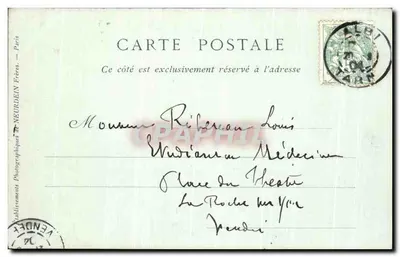 CARTE POSTALE
Ce côté est exclusivement réservé à l'adresse
ALBI
04
TARN
Monsieur Louis
Etudiant en Médecine
Place du Théatre
La Roche sur Yon
Vendée
Etablissements Photographiques de NEURDEIN Frères. — Paris
VENDÉE
CARTAPHILIA